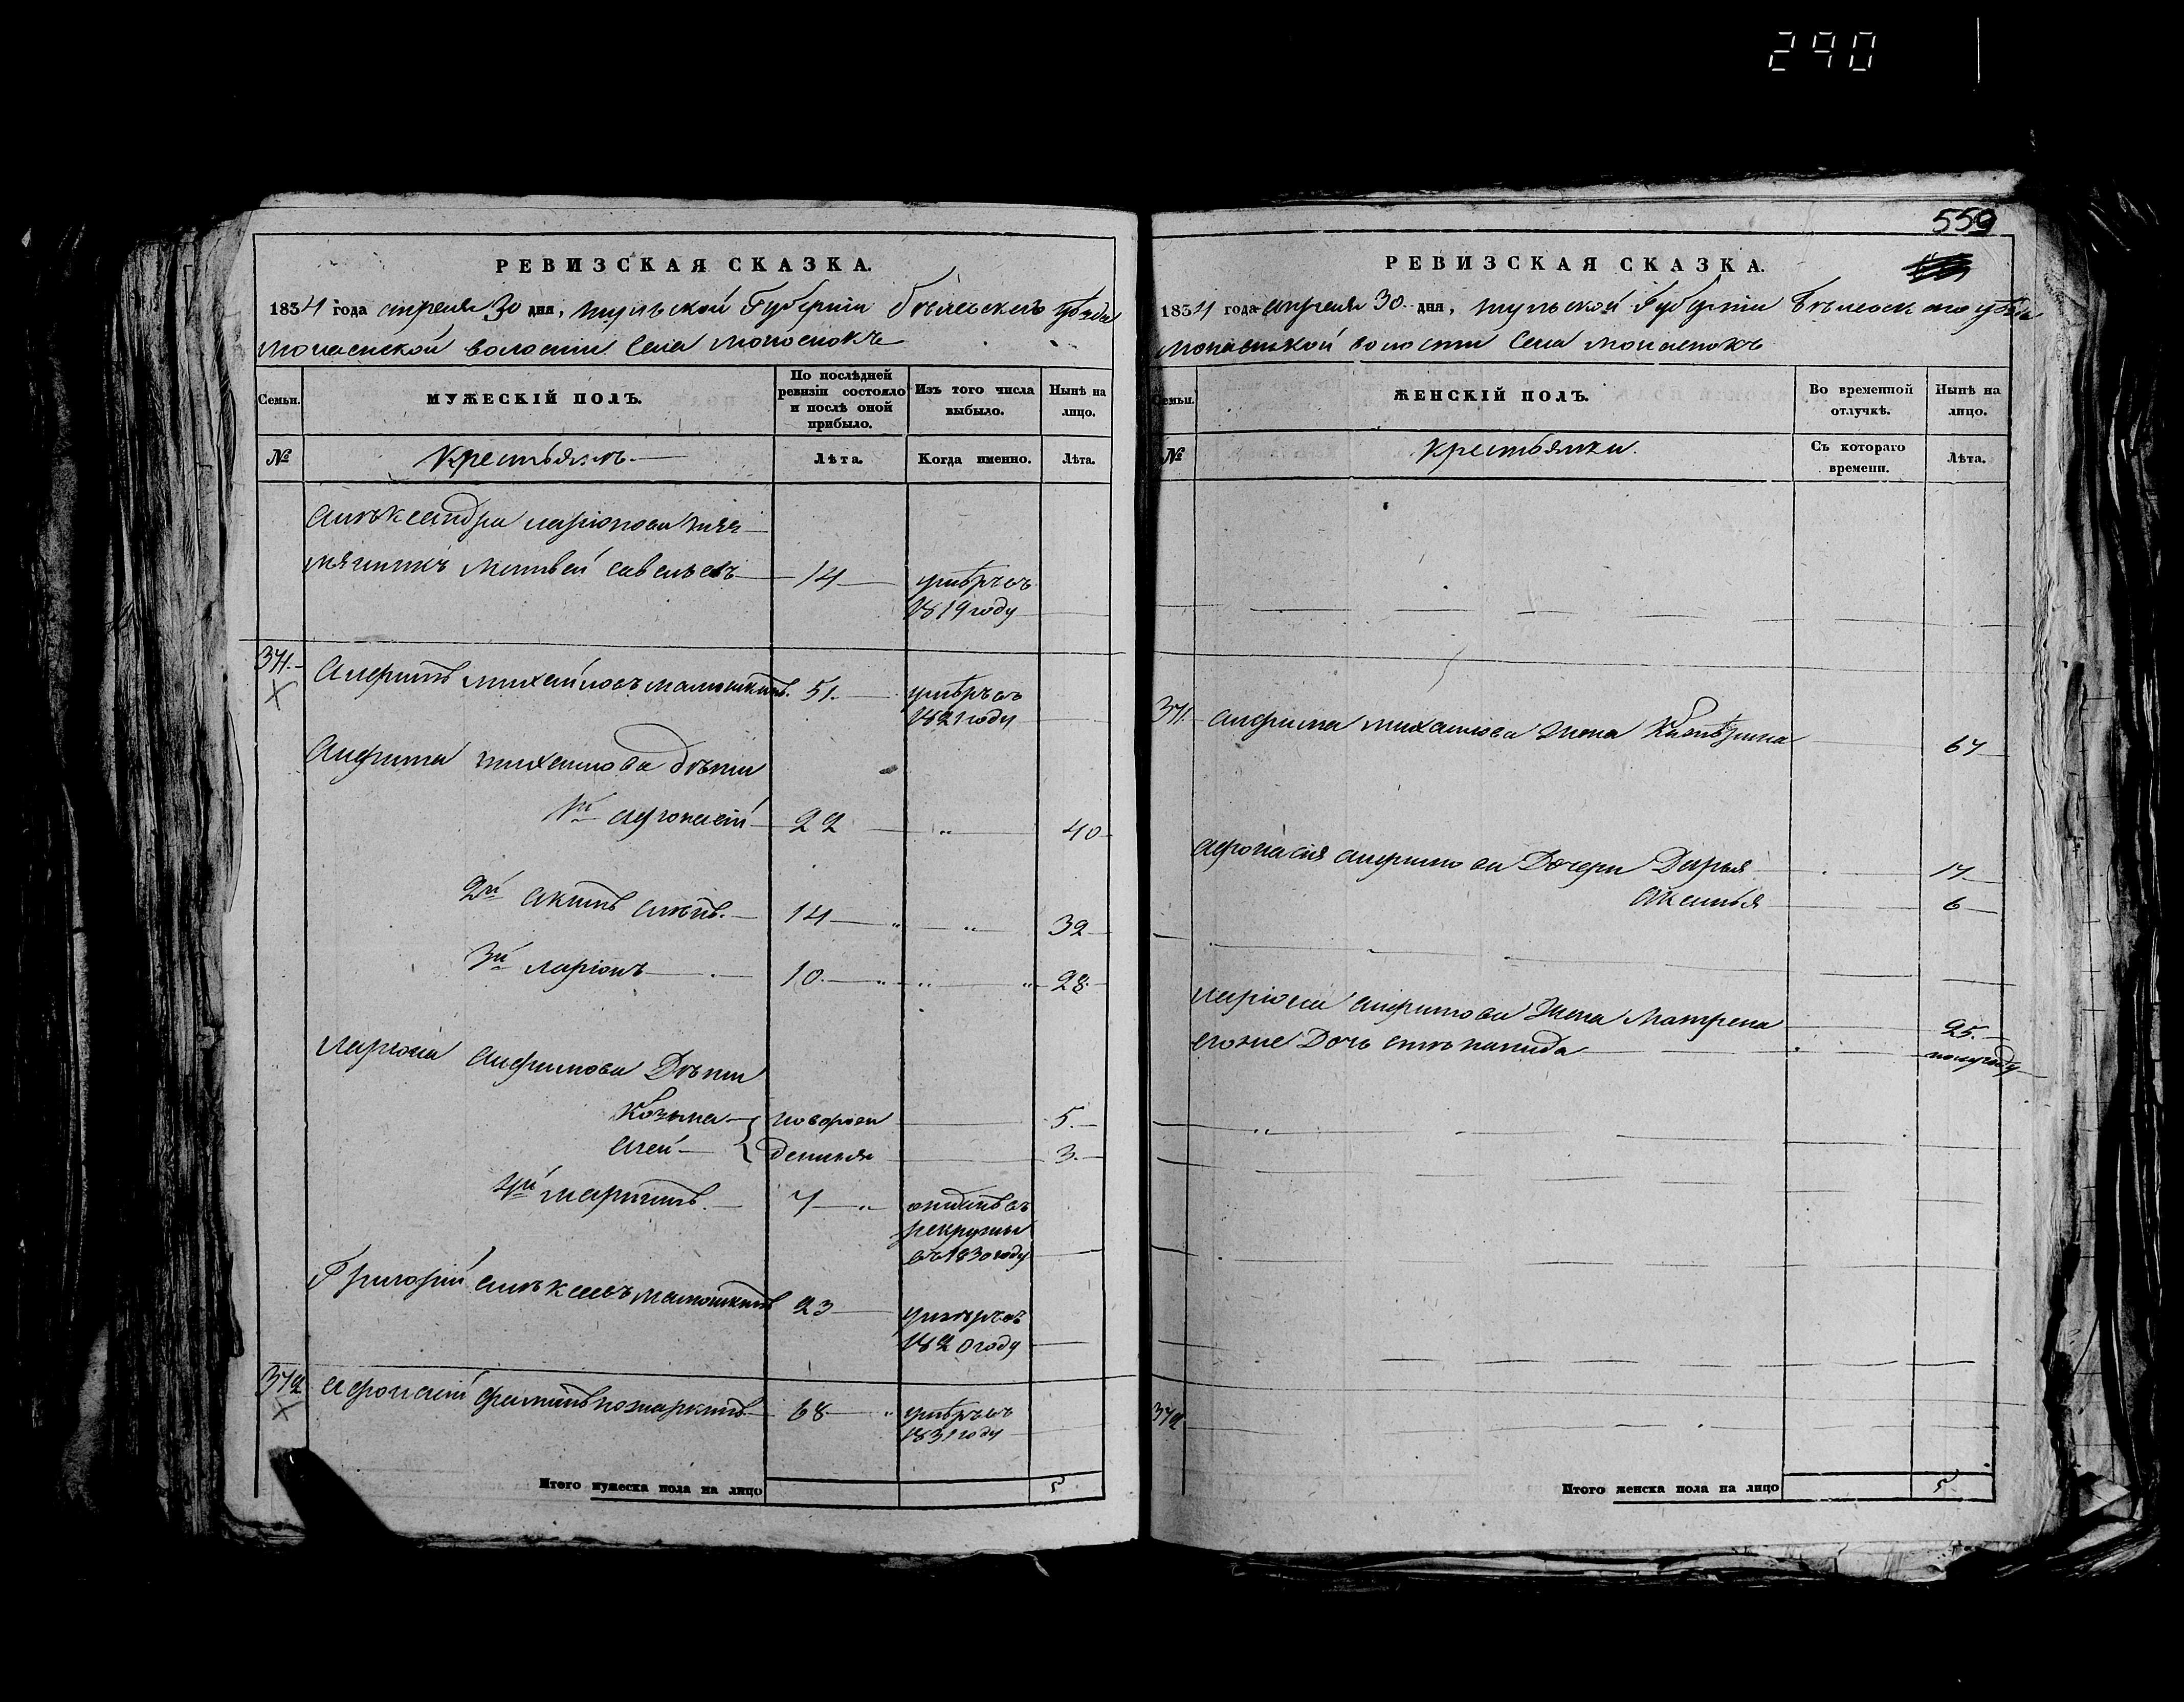 290
559
РЕВИЗСКАЯ СКАЗКА.
1834 года апреля 30 дня, тульской Губернiи бѣлевскаго уѣзда
Монаенской волости Села Монаенокъ
Семьи.
МУЖЕСКІЙ ПОЛЪ.
По послѣдней ревизіи состояло и послѣ оной прибыло.
Изъ того числа выбыло.
Нынѣ на лицо.
№
Крестьянъ
Лѣта.
Когда именно.
Лѣта.
Алѣксандра ларiонова
Матвей савельевъ 14 умѣръ въ
1819 году
371. Алфимъ михайловъ мамошкинъ. 51. умѣръ въ
1821 году
Алфима михайлова дѣти
1й афонасiй 22 " 40
2й акимъ 14 " 32
3й ларiонъ 10 " 28
Ларiона Алфимова Дѣти
Козьма новорож 5.
Алей денныя 3.
4й мартинъ. 7 отданъ въ
рекруты
въ 1830 году
Григорiй алѣксеевъ мамошкинъ 23 умѣръ въ
1820 году
372 Афонасiй 68 умѣръ въ
1831 году
Итого мужеска пола на лицо 5
РЕВИЗСКАЯ СКАЗКА.
1834 года апреля 30 дня, тульской Губернiи Бѣлевскаго уѣзда
Монаенской волости Села монаенокъ
Семьи.
ЖЕНСКІЙ ПОЛЪ.
Во временной отлучкѣ.
Нынѣ на лицо.
№
Крестьянки.
Съ котораго времени.
Лѣта.
371. Алфима михайлова жена Катѣрина 67
афонасiя алфимова Дочери Дарья 17
6
Ларiона алфимова Жена Матрена 25.
егоже Дочь стѣпанида полугоду
372
Итого женска пола на лицо 5